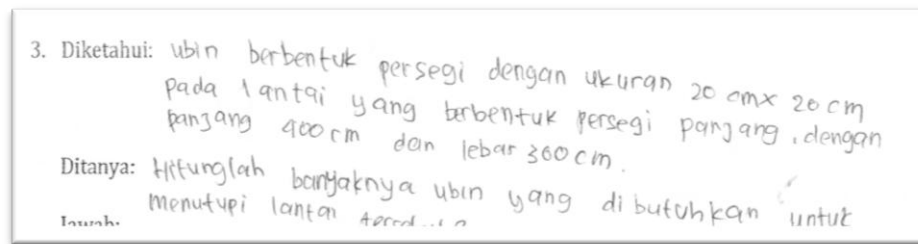 3. Diketahui: ubin berbentuk persegi dengan ukuran 20 cm x 20 cm
pada lantai yang berbentuk persegi panjang, dengan
panjang 400 cm dan lebar 360 cm.
Ditanya: Hitunglah banyaknya ubin yang dibutuhkan untuk
menutupi lantai